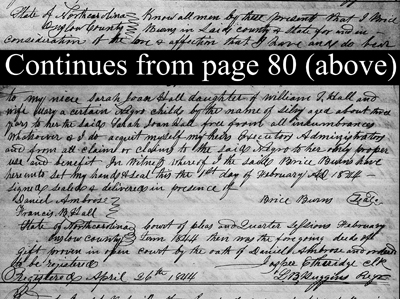 State of Northcarolina Know all men by these presents that I Brice
Onslow County Burns in Said County & State for and in
consideration of the love & affection that I have and do bear
Continues from page 80 (above)
to my niece Sarah Joan Hall daughter of William & Hall and
wife Mary a certain Negro child by the name of and about three
years to her the said Sarah Joan Hall free from all incumbrances
Whatsoever & I do acquit myself my heirs Executors Administrators
and from all Claim or claims to the said Negro to her only proper
use and benefit In Witness whereof I the said Brice Burns have
hereunto set my hand & Seal this the 1st day of February AD 1844
signed sealed & delivered in presence of
Daniel Ambrose Brice Burns Seal
Francis B. Hall
State of Northcarolina Court of pleas and Quarter Sessions February
Onslow County Term 1844 then was the forgoing deed of
gift proven in open Court by the oath of Daniel Ambrose and ordered
to be registered Jasper Etheridge Clk
Registered April 26th 1844 Huggins Regr